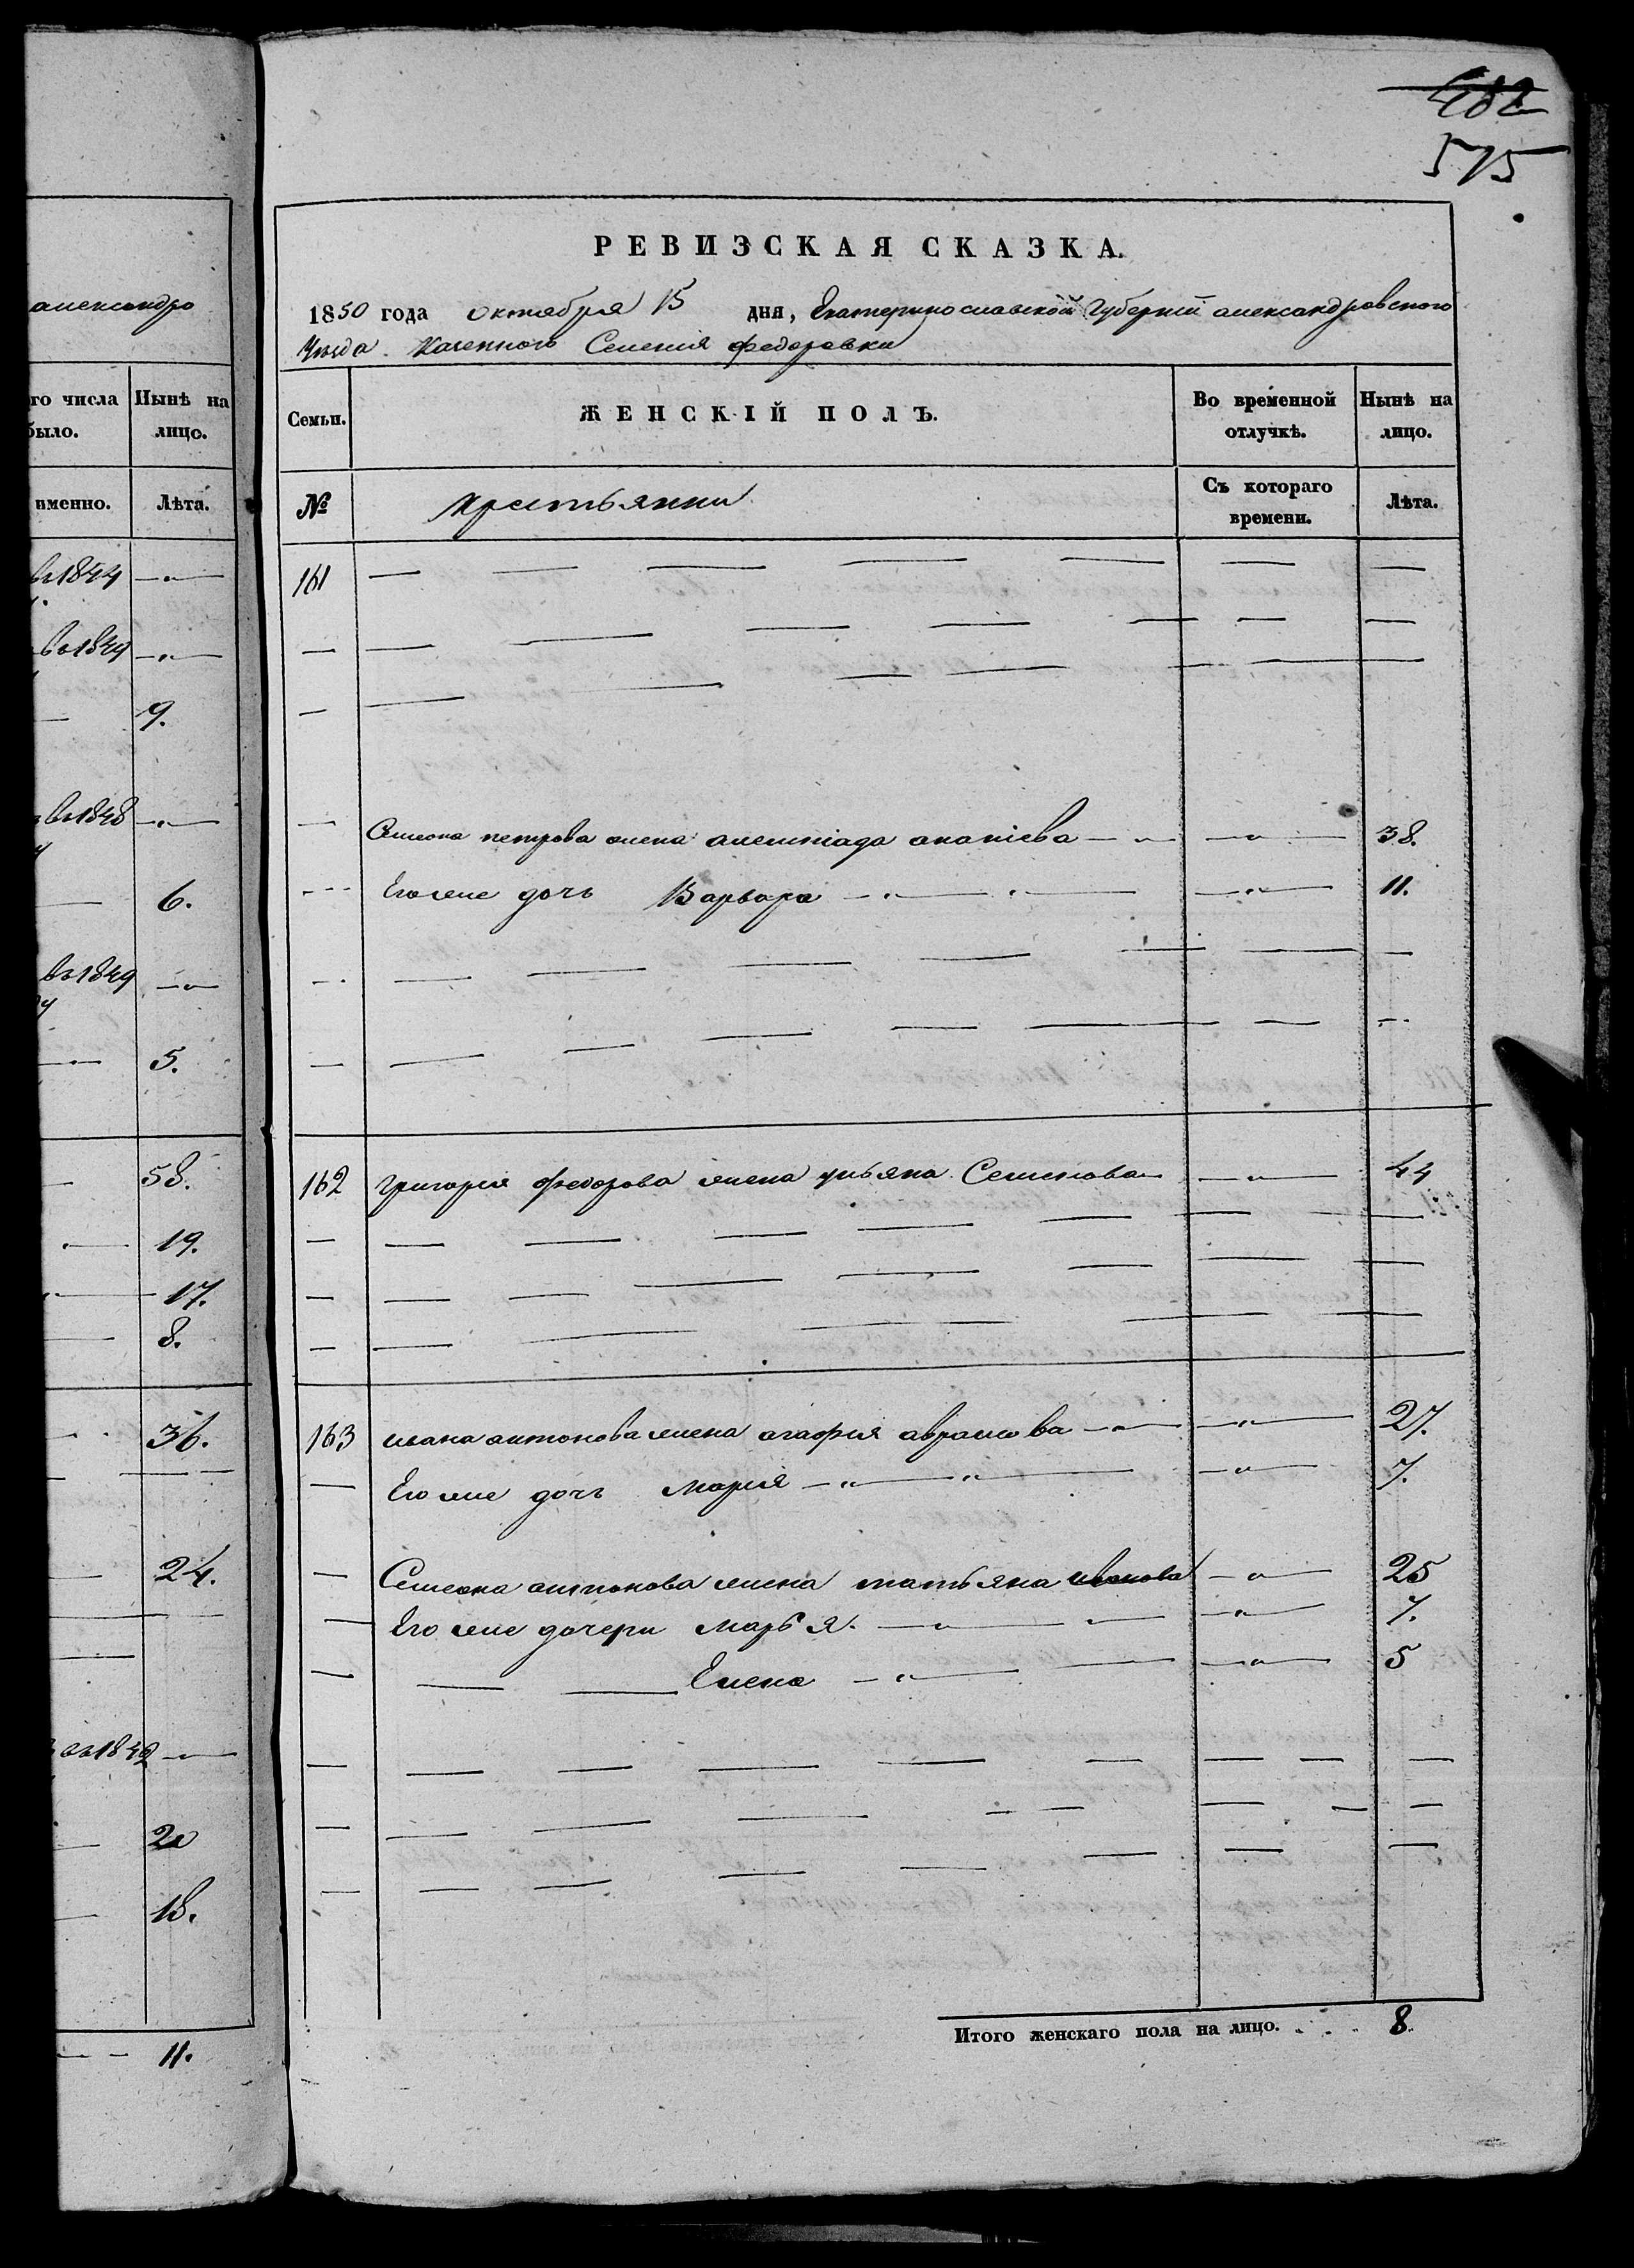 482
515
александро
го числа
было.
Нынѣ на
лицо.
именно.
Лѣта.
въ1844
въ1849
9.
въ1848
6.
въ1849
5.
58.
19.
17.
8.
36.
24.
въ1842
20
18.
11.
РЕВИЗСКАЯ СКАЗКА.
1850 года октября 15 дня, Екатеринославской Губерніи александровского
Уѣзда Казенного Селенія федоровки
Семьи.
ЖЕНСКІЙ ПОЛЪ.
Во временной
отлучкѣ.
Нынѣ на
лицо.
№
крестьянки
Съ котораго
времени.
Лѣта.
161
Симеона петрова жена ананіева 38.
Его же дочь Варвара 11.
162 григорія федорова жена ульяна Семенова 44
163 ивана антонова жена агафія аврамова 27.
Его же дочь марія 7.
Симеона антонова жена татьяна иванова 25
Его же дочери марья 7.
Елена 5
Итого женскаго пола на лицо. 8.